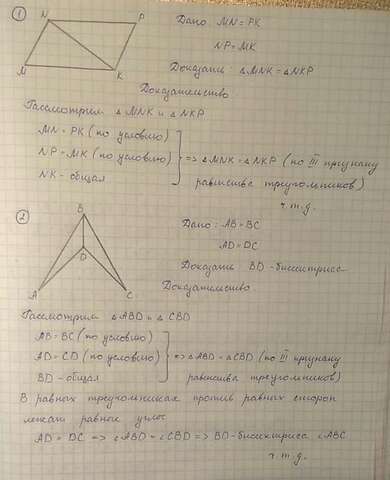 1
N P
M K
Дано: MN = PK
NP = MK
Доказать: △MNK = △NKP
Доказательство
Рассмотрим △MNK и △NKP
MN = PK (по условию)
NP = MK (по условию)
NK - общая
=> △MNK = △NKP (по III признаку
равенства треугольников)
ч.т.д.
2
B
D
A C
Дано: AB = BC
AD = DC
Доказать BD - биссектриса
Доказательство
Рассмотрим △ABD и △CBD
AB = BC (по условию)
AD = CD (по условию)
BD - общая
=> △ABD = △CBD (по III признаку
равенства треугольников)
В равных треугольниках против равных сторон
лежат равные углы
AD = DC => ∠ABD = ∠CBD => BD - биссектриса ∠ABC
ч.т.д.